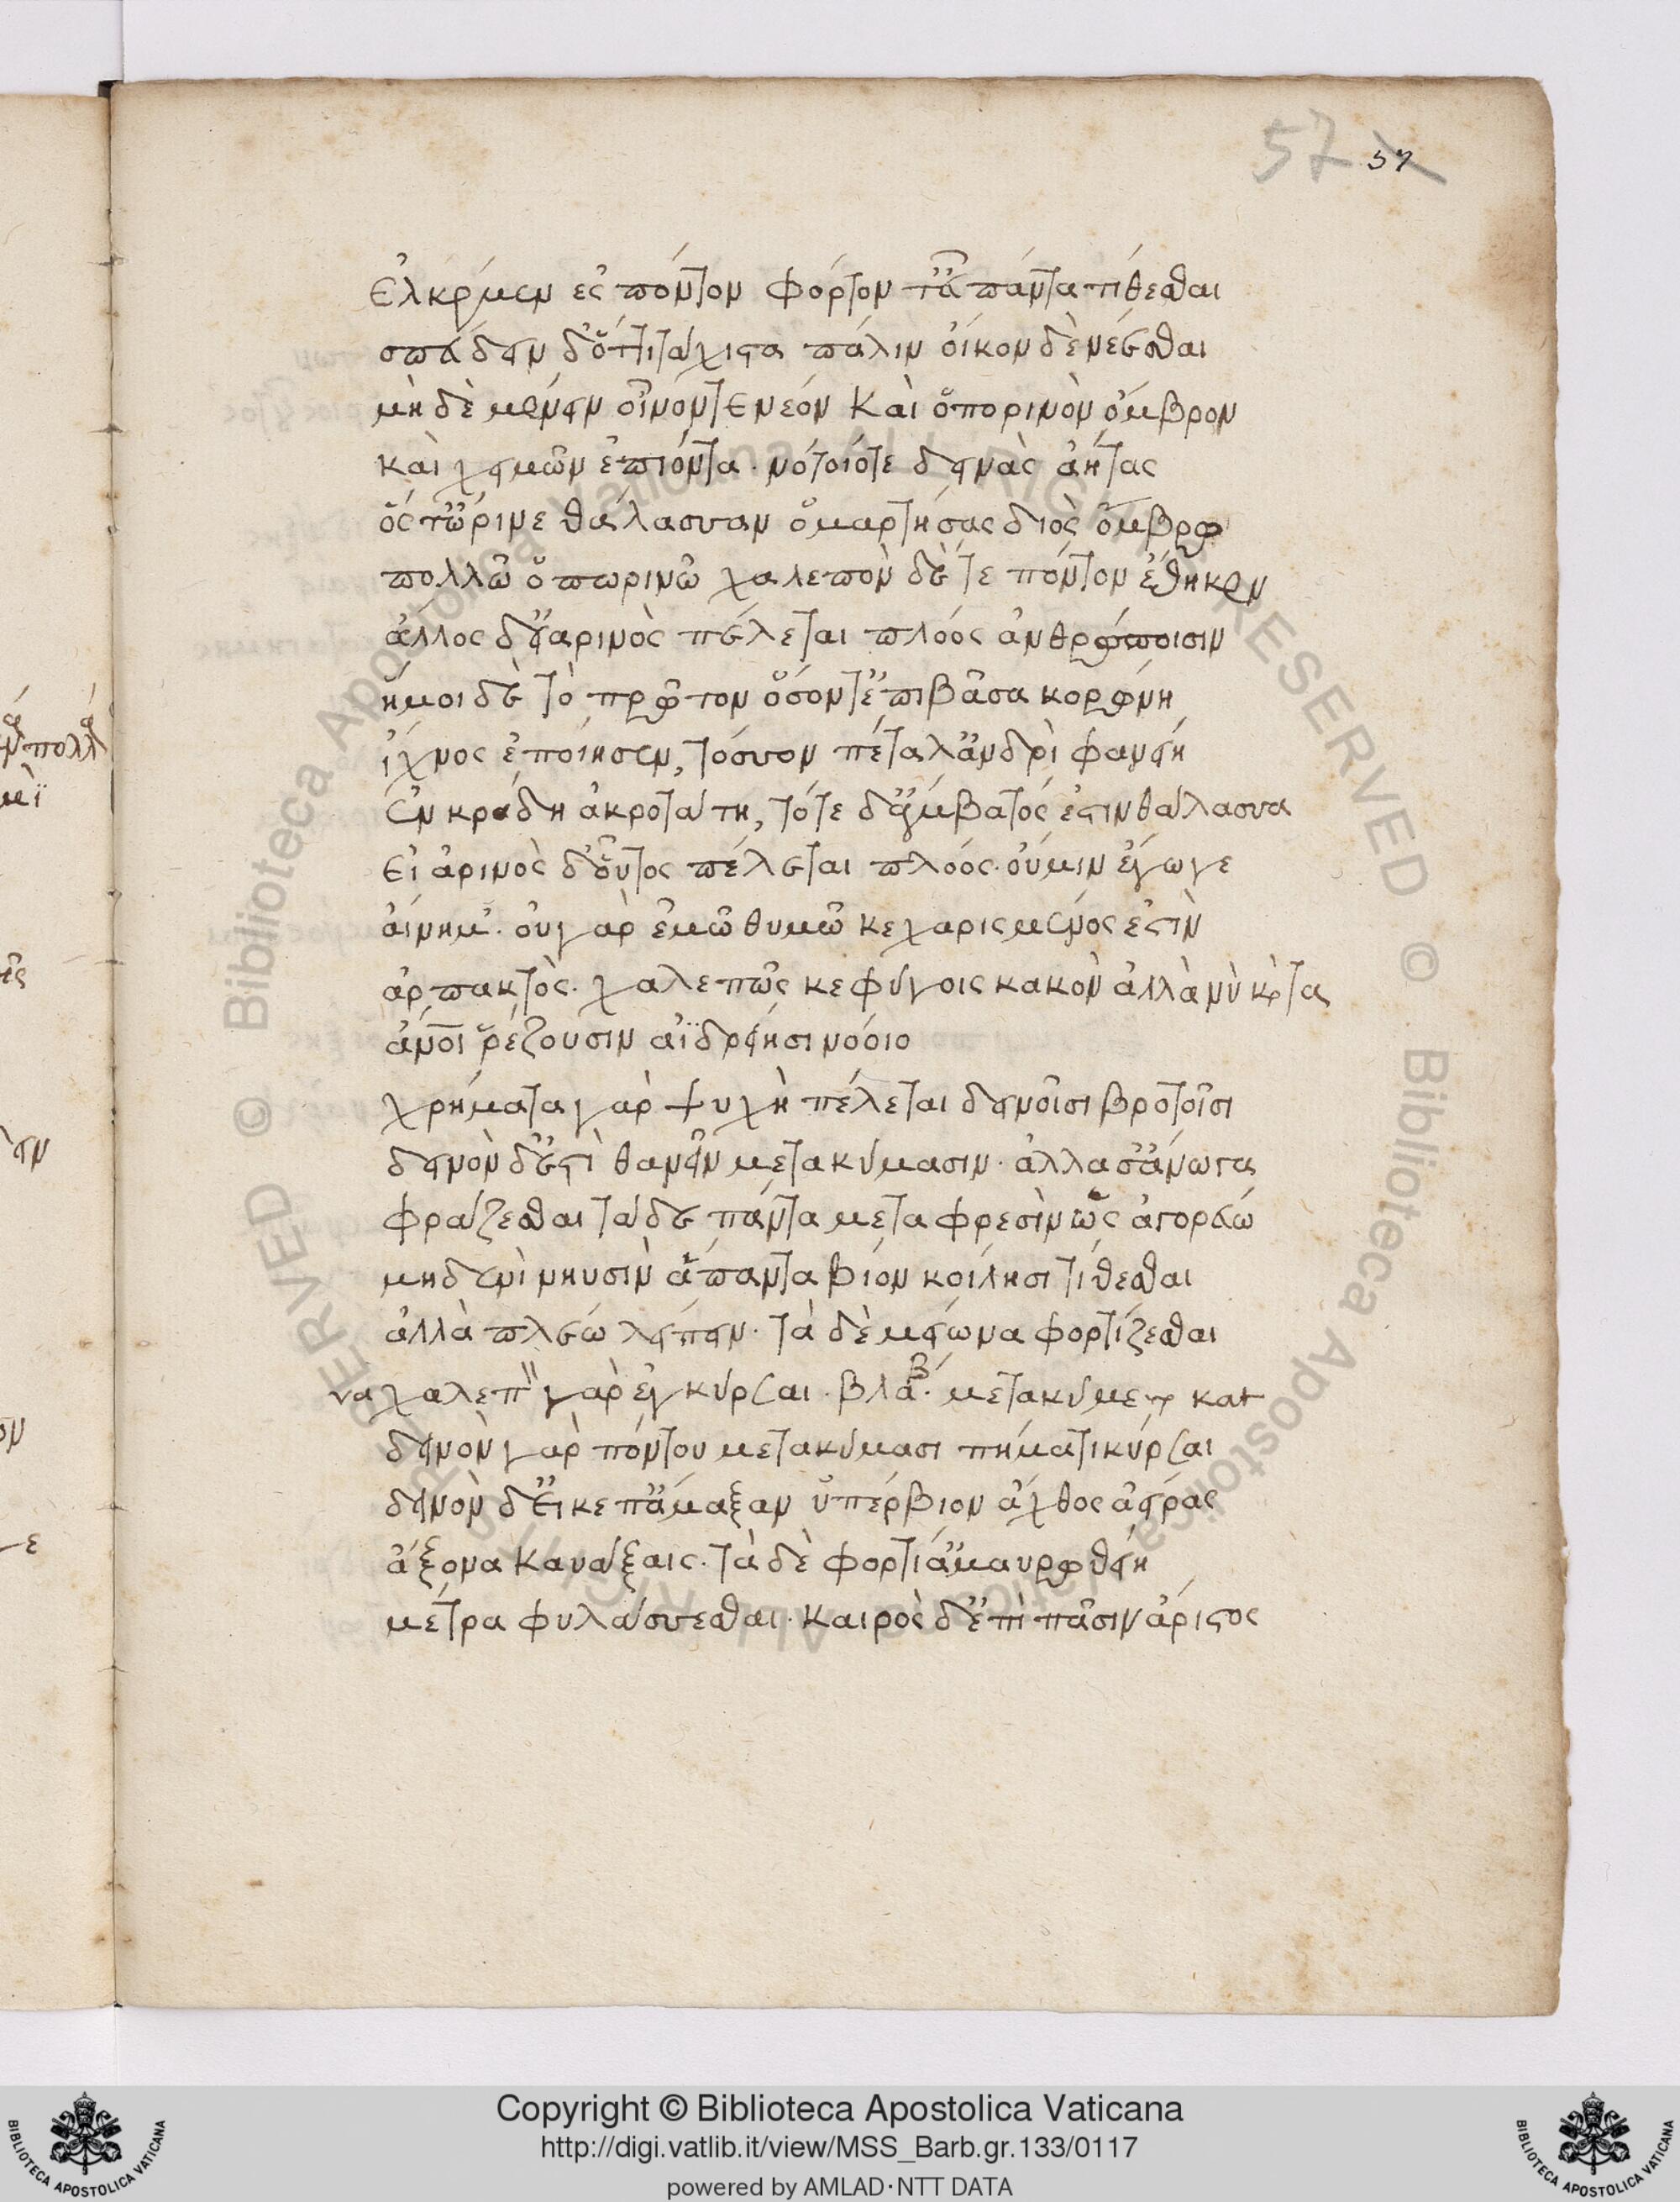 57 57
ἑλκέμεν ἐς πόντον φόρτον τ' ἆ πάντα τίθεσθαι
σπεύδειν δ' ὅττι τάχιστα πάλιν οἶκον δὲ νέεσθαι
μὴ δὲ μένειν οἶνόν τε νέον καὶ ὀπορινὸν ὄμβρον
καὶ χειμῶν ἐπιόντα. νότοιό τε δεινὰς ἀήτας
ὅς τ' ὤρινε θάλασσαν ὁμαρτήσας διὸς ὄμβρω
πολλῶ ὀπωρινῶ χαλεπὸν δέ τε πόντον ἔθηκεν
ἄλλος δ' εἰαρινὸς πέλεται πλόος ἀνθρώποισιν
ἤμοι δε τὸ πρῶτον ὅσον τ' ἐπιβᾶσα κορώνη
ἴχνος ἐποίησεν, τόσσον πέταλ' ἀνδρὶ φανείη
ἐν κράδη ἀκροτάτη, τότε δ' ἄμβατός ἐστιν θάλασσα
εἰαρινὸς δ' οὗτος πέλεται πλόος. οὔ μιν ἔγωγε
αἴνημ'. οὐ γὰρ ἐμῶ θυμῶ κεχαρισμένος ἐστὶν
ἁρπακτὸς. χαλεπῶς κε φύγοις κακὸν ἀλλὰ νὺ κ τα
ἄνοι ῥέζουσιν ἀϊδρείησι νόοιο
χρήματα γὰρ ψυχὴ πέλεται δεινοῖσι βροτοῖσι
δεινὸν δ' ἐστὶ θανεῖν μετα κύμασιν. ἀλλα σ' ἄνωγα
φράζεσθαι τάδε πάντα μετα φρεσὶν ὡς ἀγορεύω
μηδ' ἐνὶ νηυσὶν ἅπαντα βίον κοίλησι τίθεσθαι
ἀλλὰ πλέω λείπειν. τὰ δὲ μείωνα φορτίζεσθαι
χαλεπ γὰρ ἐγκύρσαι. βλάβ. μετακύμε κατ
δεινὸν γὰρ πόντου μετα κύμασι πήματι κύρσαι
δεινὸν δ' εἴ κε π' ἄμαξαν ὑπέρβιον ἄχθος ἀείρας
ἄξονα καυάξαις. τὰ δὲ φορτί' ἀμαυρωθείη
μέτρα φυλάσσεσθαι. καιρὸς δ' ἐπὶ πᾶσιν ἄριστος
πολλ
Copyright © Biblioteca Apostolica Vaticana
http://digi.vatlib.it/view/MSS_Barb.gr.133/0117
powered by AMLAD·NTT DATA
BIBLIOTECA APOSTOLICA VATICANA
BIBLIOTECA APOSTOLICA VATICANA